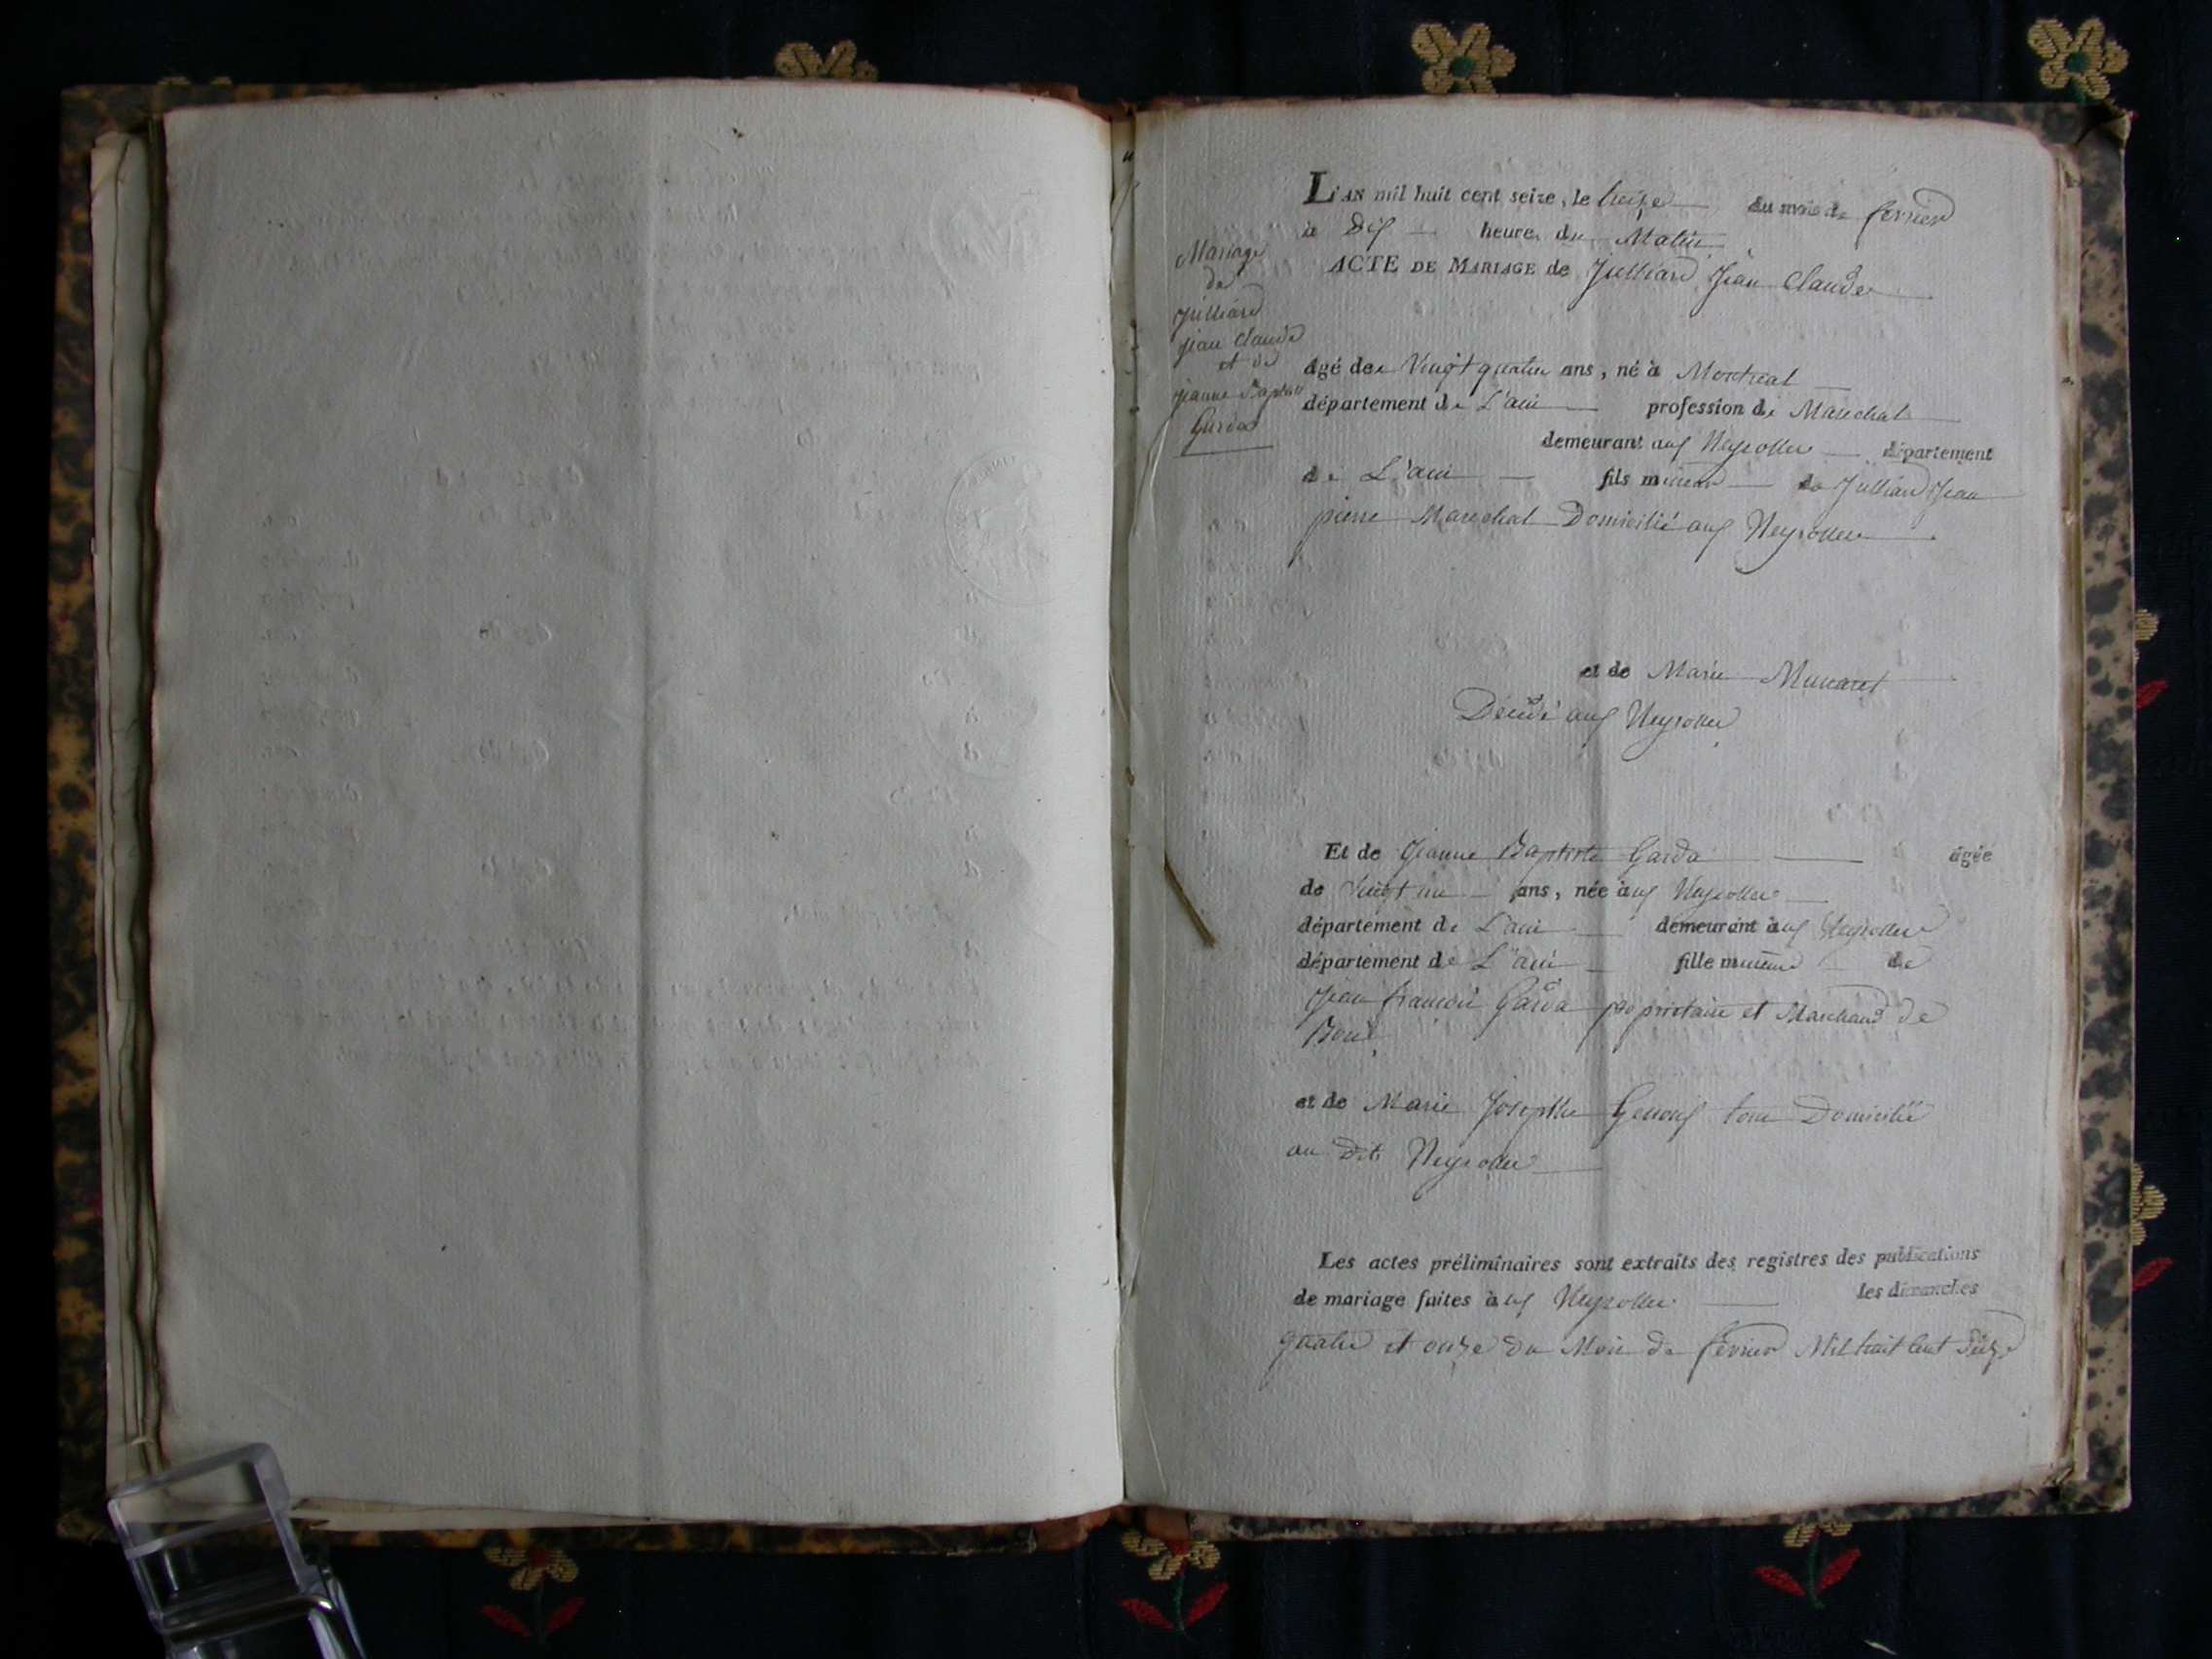 L'AN mil huit cent seize, le treize du mois de fevrier
à Dix heure du Matin
Mariage
de
Julliard
jean claude
et de
jeanne Baptiste
Garda
ACTE DE MARIAGE de Julliard Jean Claude
âgé de Vingt quatre ans, né à Montreal
département de L'ain profession de Marechal
demeurant aux Neyrolles département
de L'ain fils mineur de Julliard Jean
pierre Marechal Domicilié aux Neyrolles
et de Marie
Décédé aux Neyrolles
Et de Jeanne Baptiste Garda âgée
de Vingt un ans, née à aux Neyrolles
département de L'ain demeurant à aux Neyrolles
département de L'ain fille mineure de
Jean françois Garda propriétaire et Marchand de
Bois
et de Marie Josephte tous Domicilié
au dit Neyrolles
Les actes préliminaires sont extraits des registres des publications
de mariage faites à aux Neyrolles les dimanches
quatre et onze du Mois de fevrier Mil huit Cent Seize